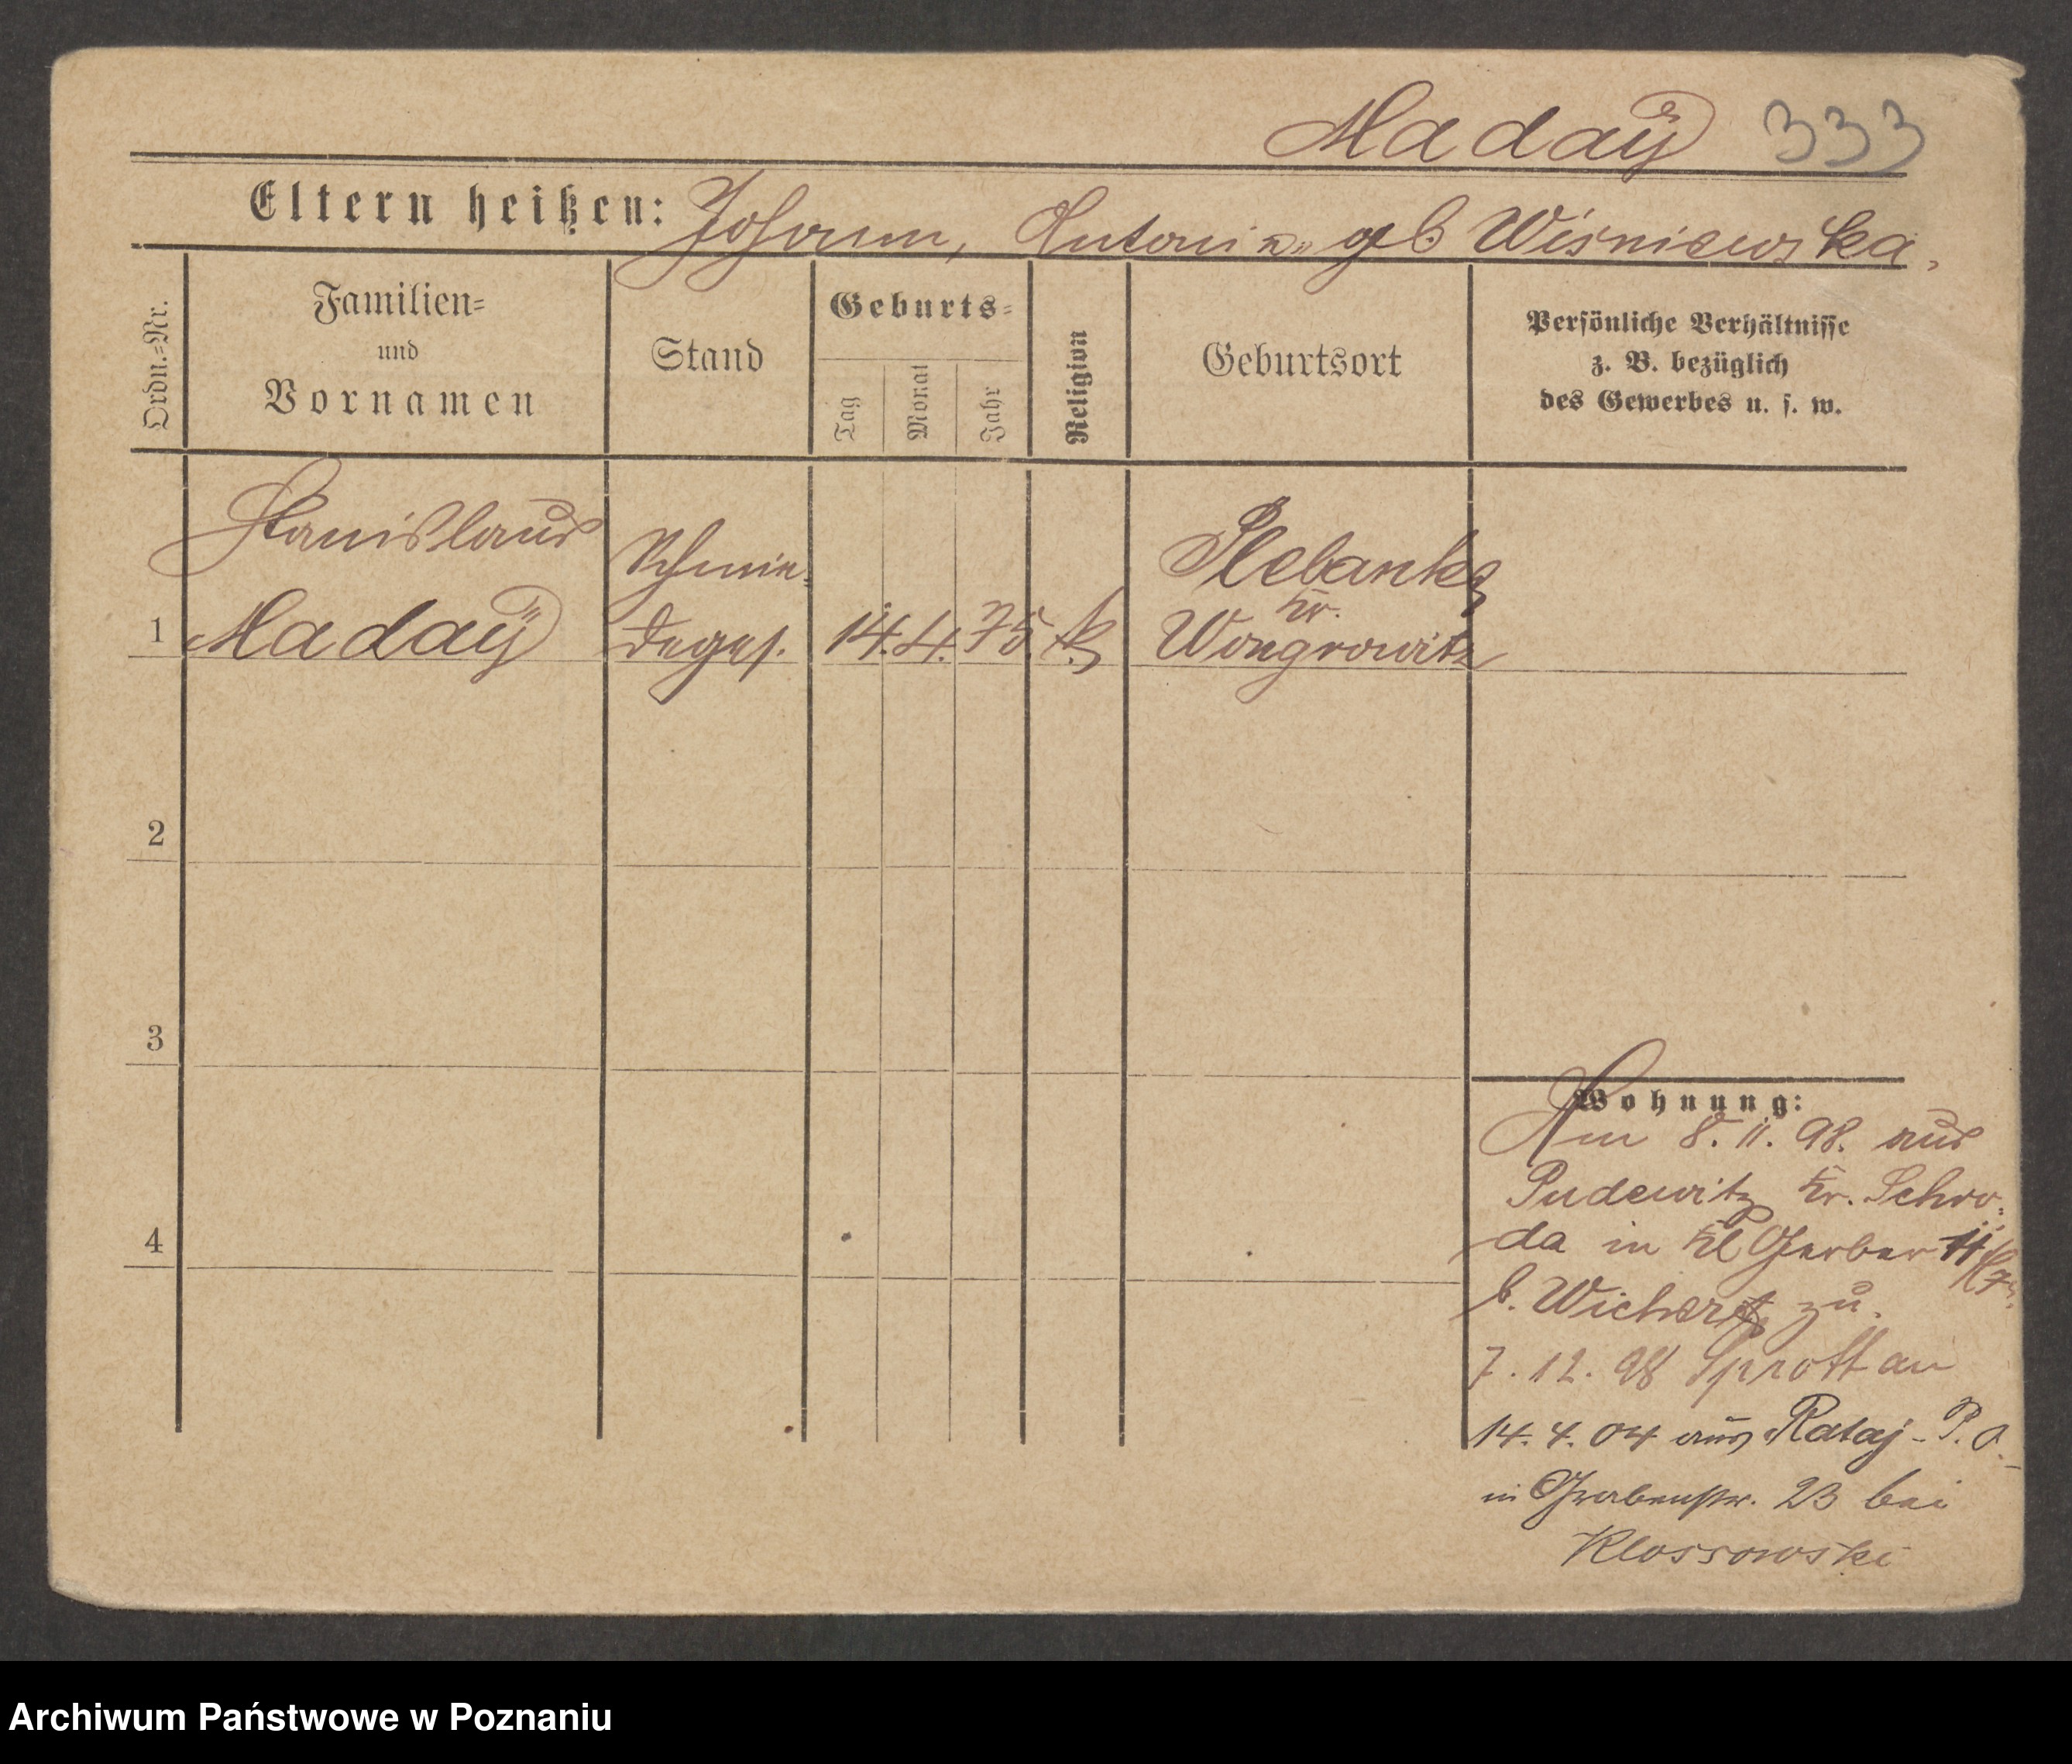 Madaÿ 333
Eltern heißen: Johann, Antonina geb Wisniewska.
Ordn.=Nr.
Familien=
und
Vornamen
Stand
Geburts=
Tag
Monat
Jahr
Religion
Geburtsort
Persönliche Verhältnisse
z. B. bezüglich
des Gewerbes u. s. w.
1
Stanislaus
Madaÿ
Schmie=
deges.
14. 4. 75. k.
Plebanki
Kr.
Wongrowitz
2
3
4
Wohnung:
Am 8. 11. 98. aus
Pudewitz Kr. Schro=
da in Kl Gerber 11
b. Wichert zu.
7. 12. 98 Sprottau
14. 4. 04 aus Rataj - P. O.
in Grabenstr. 23 bei
Klossowski
Archiwum Państwowe w Poznaniu